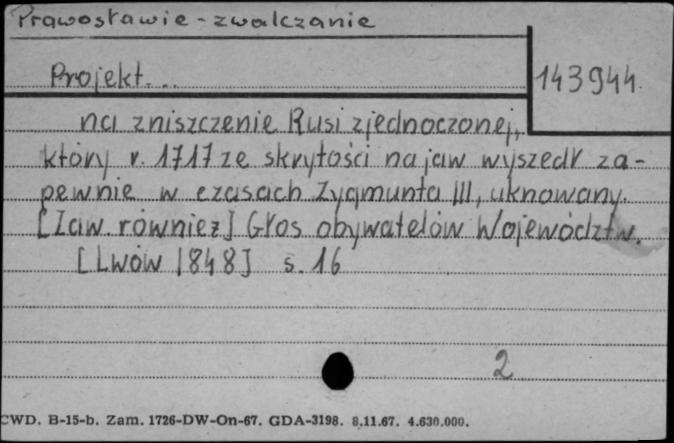 Prawosławie - zwalczanie
Projekt...
143944.
na zniszczenie Rusi zjednoczonej,
który r. 1717 ze skrytości na jaw wyszedł za-
pewnie w czasach Zygmunta III, uknowany.
[Zaw. również] Głos obywatelów Województw.
[Lwów 1848] s. 16
2
CWD. B-15-b. Zam. 1726-DW-On-67. GDA-3198. 8.11.67. 4.630.000.